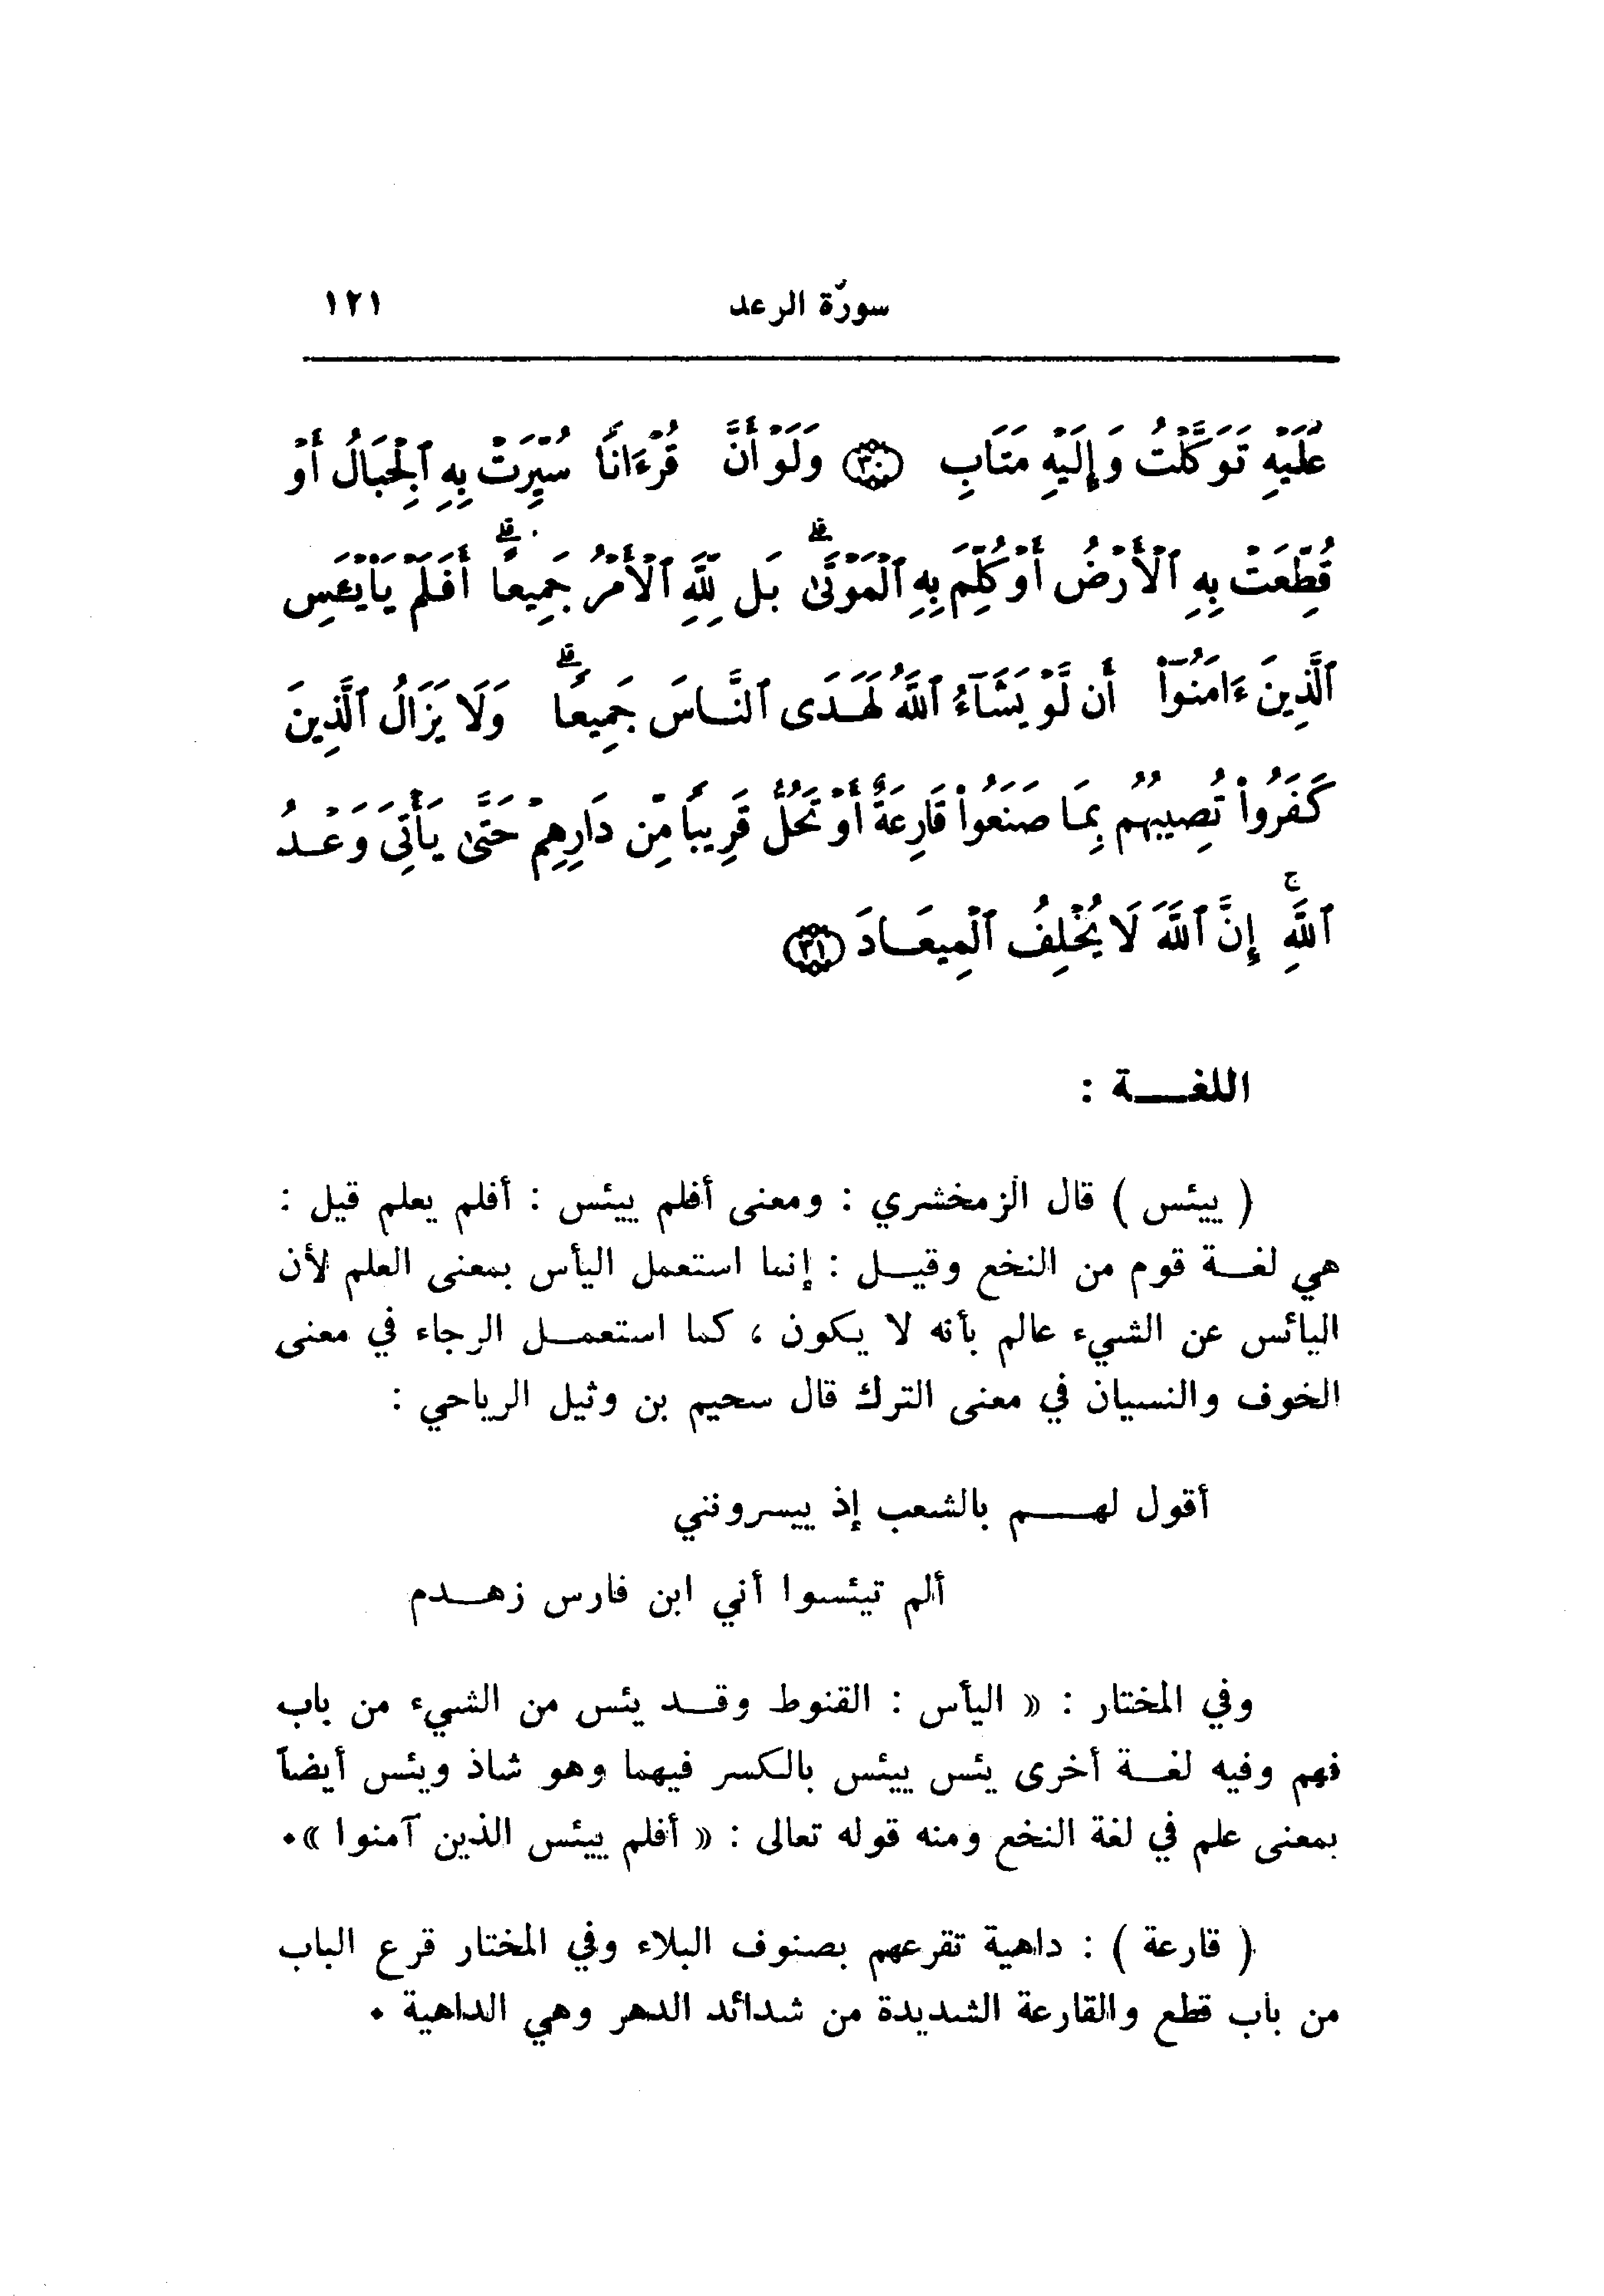 سورة الرعد ١٢١
عَلَيْهِ تَوَكَّلْتُ وَإِلَيْهِ مَتَابِ ٣٠ وَلَوْ أَنَّ قُرْءَانًا سُيِّرَتْ بِهِ ٱلْجِبَالُ أَوْ
قُطِّعَتْ بِهِ ٱلْأَرْضُ أَوْ كُلِّمَ بِهِ ٱلْمَوْتَىٰ ۗ بَل لِّلَّهِ ٱلْأَمْرُ جَمِيعًا ۗ أَفَلَمْ يَا۟يْـَٔسِ
ٱلَّذِينَ ءَامَنُوٓا۟ أَن لَّوْ يَشَآءُ ٱللَّهُ لَهَدَى ٱلنَّاسَ جَمِيعًا ۗ وَلَا يَزَالُ ٱلَّذِينَ
كَفَرُوا۟ تُصِيبُهُم بِمَا صَنَعُوا۟ قَارِعَةٌ أَوْ تَحُلُّ قَرِيبًا مِّن دَارِهِمْ حَتَّىٰ يَأْتِىَ وَعْدُ
ٱللَّهِ ۚ إِنَّ ٱللَّهَ لَا يُخْلِفُ ٱلْمِيعَادَ ٣١
اللغـــة :
( ييئس ) قال الزمخشري : ومعنى أفلم ييئس : أفلم يعلم قيل :
هي لغـة قوم من النخع وقيـل : إنما استعمل اليأس بمعنى العلم لأن
اليائس عن الشيء عالم بأنه لا يكون ، كما استعمـل الرجاء في معنى
الخوف والنسيان في معنى الترك قال سحيم بن وثيل الرياحي :
أقول لهـــم بالشعب إذ ييسرونني
ألم تيئسوا أني ابن فارس زهـدم
وفي المختار : « اليأس : القنوط وقـد يئس من الشيء من باب
فهم وفيه لغـة أخرى يئس ييئس بالكسر فيهما وهو شاذ ويئس أيضاً
بمعنى علم في لغة النخع ومنه قوله تعالى : « أفلم ييئس الذين آمنوا ».
( قارعة ) : داهية تقرعهم بصنوف البلاء وفي المختار قرع الباب
من باب قطع والقارعة الشديدة من شدائد الدهر وهي الداهية .